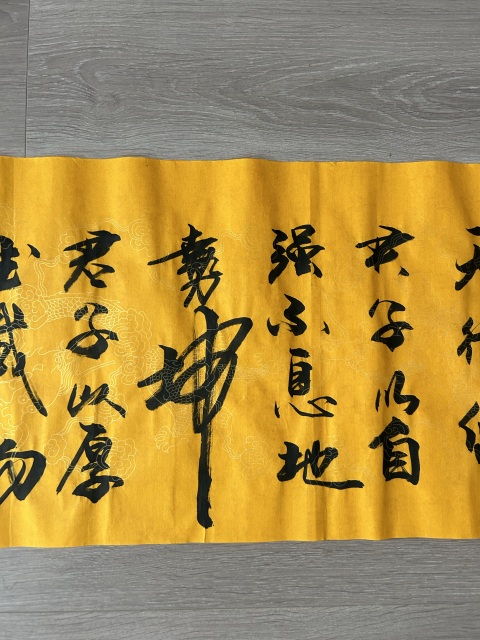 天行健
君子以自
强不息地
勢坤
君子以厚
德载物